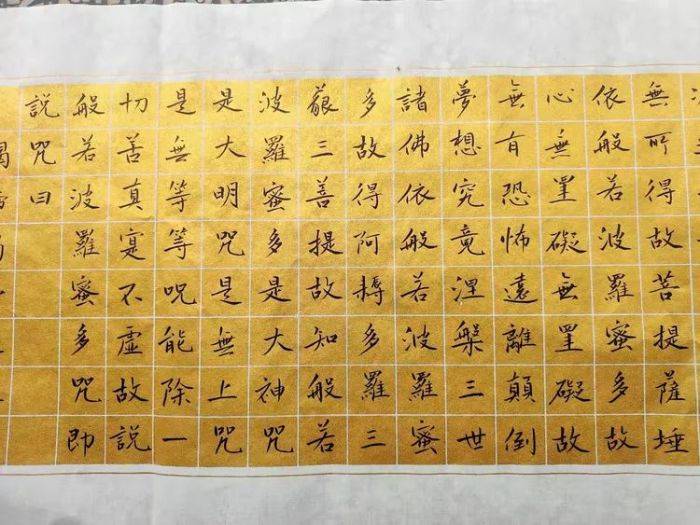 無所得故菩提薩埵
依般若波羅蜜多故
心無罣礙無罣礙故
無有恐怖遠離顛倒
夢想究竟涅槃三世
諸佛依般若波羅蜜
多故得阿耨多羅三
藐三菩提故知般若
波羅蜜多是大神咒
是大明咒是無上咒
是無等等呪能除一
切苦真寔不虛故說
般若波羅蜜多咒即
說咒曰